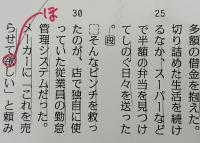 多額の借金を抱えた。
切り詰めた生活を続け
25
るなか、スーパーなど
で半額の弁当を見つけ
てしのぐ日々を送っ
。
30
そんなピンチを救っ
たのが、店で独自に使
っていた従業員の勤怠
管理システムだった。
メーカーに「これを売
らせて欲しい」と頼み
ほ